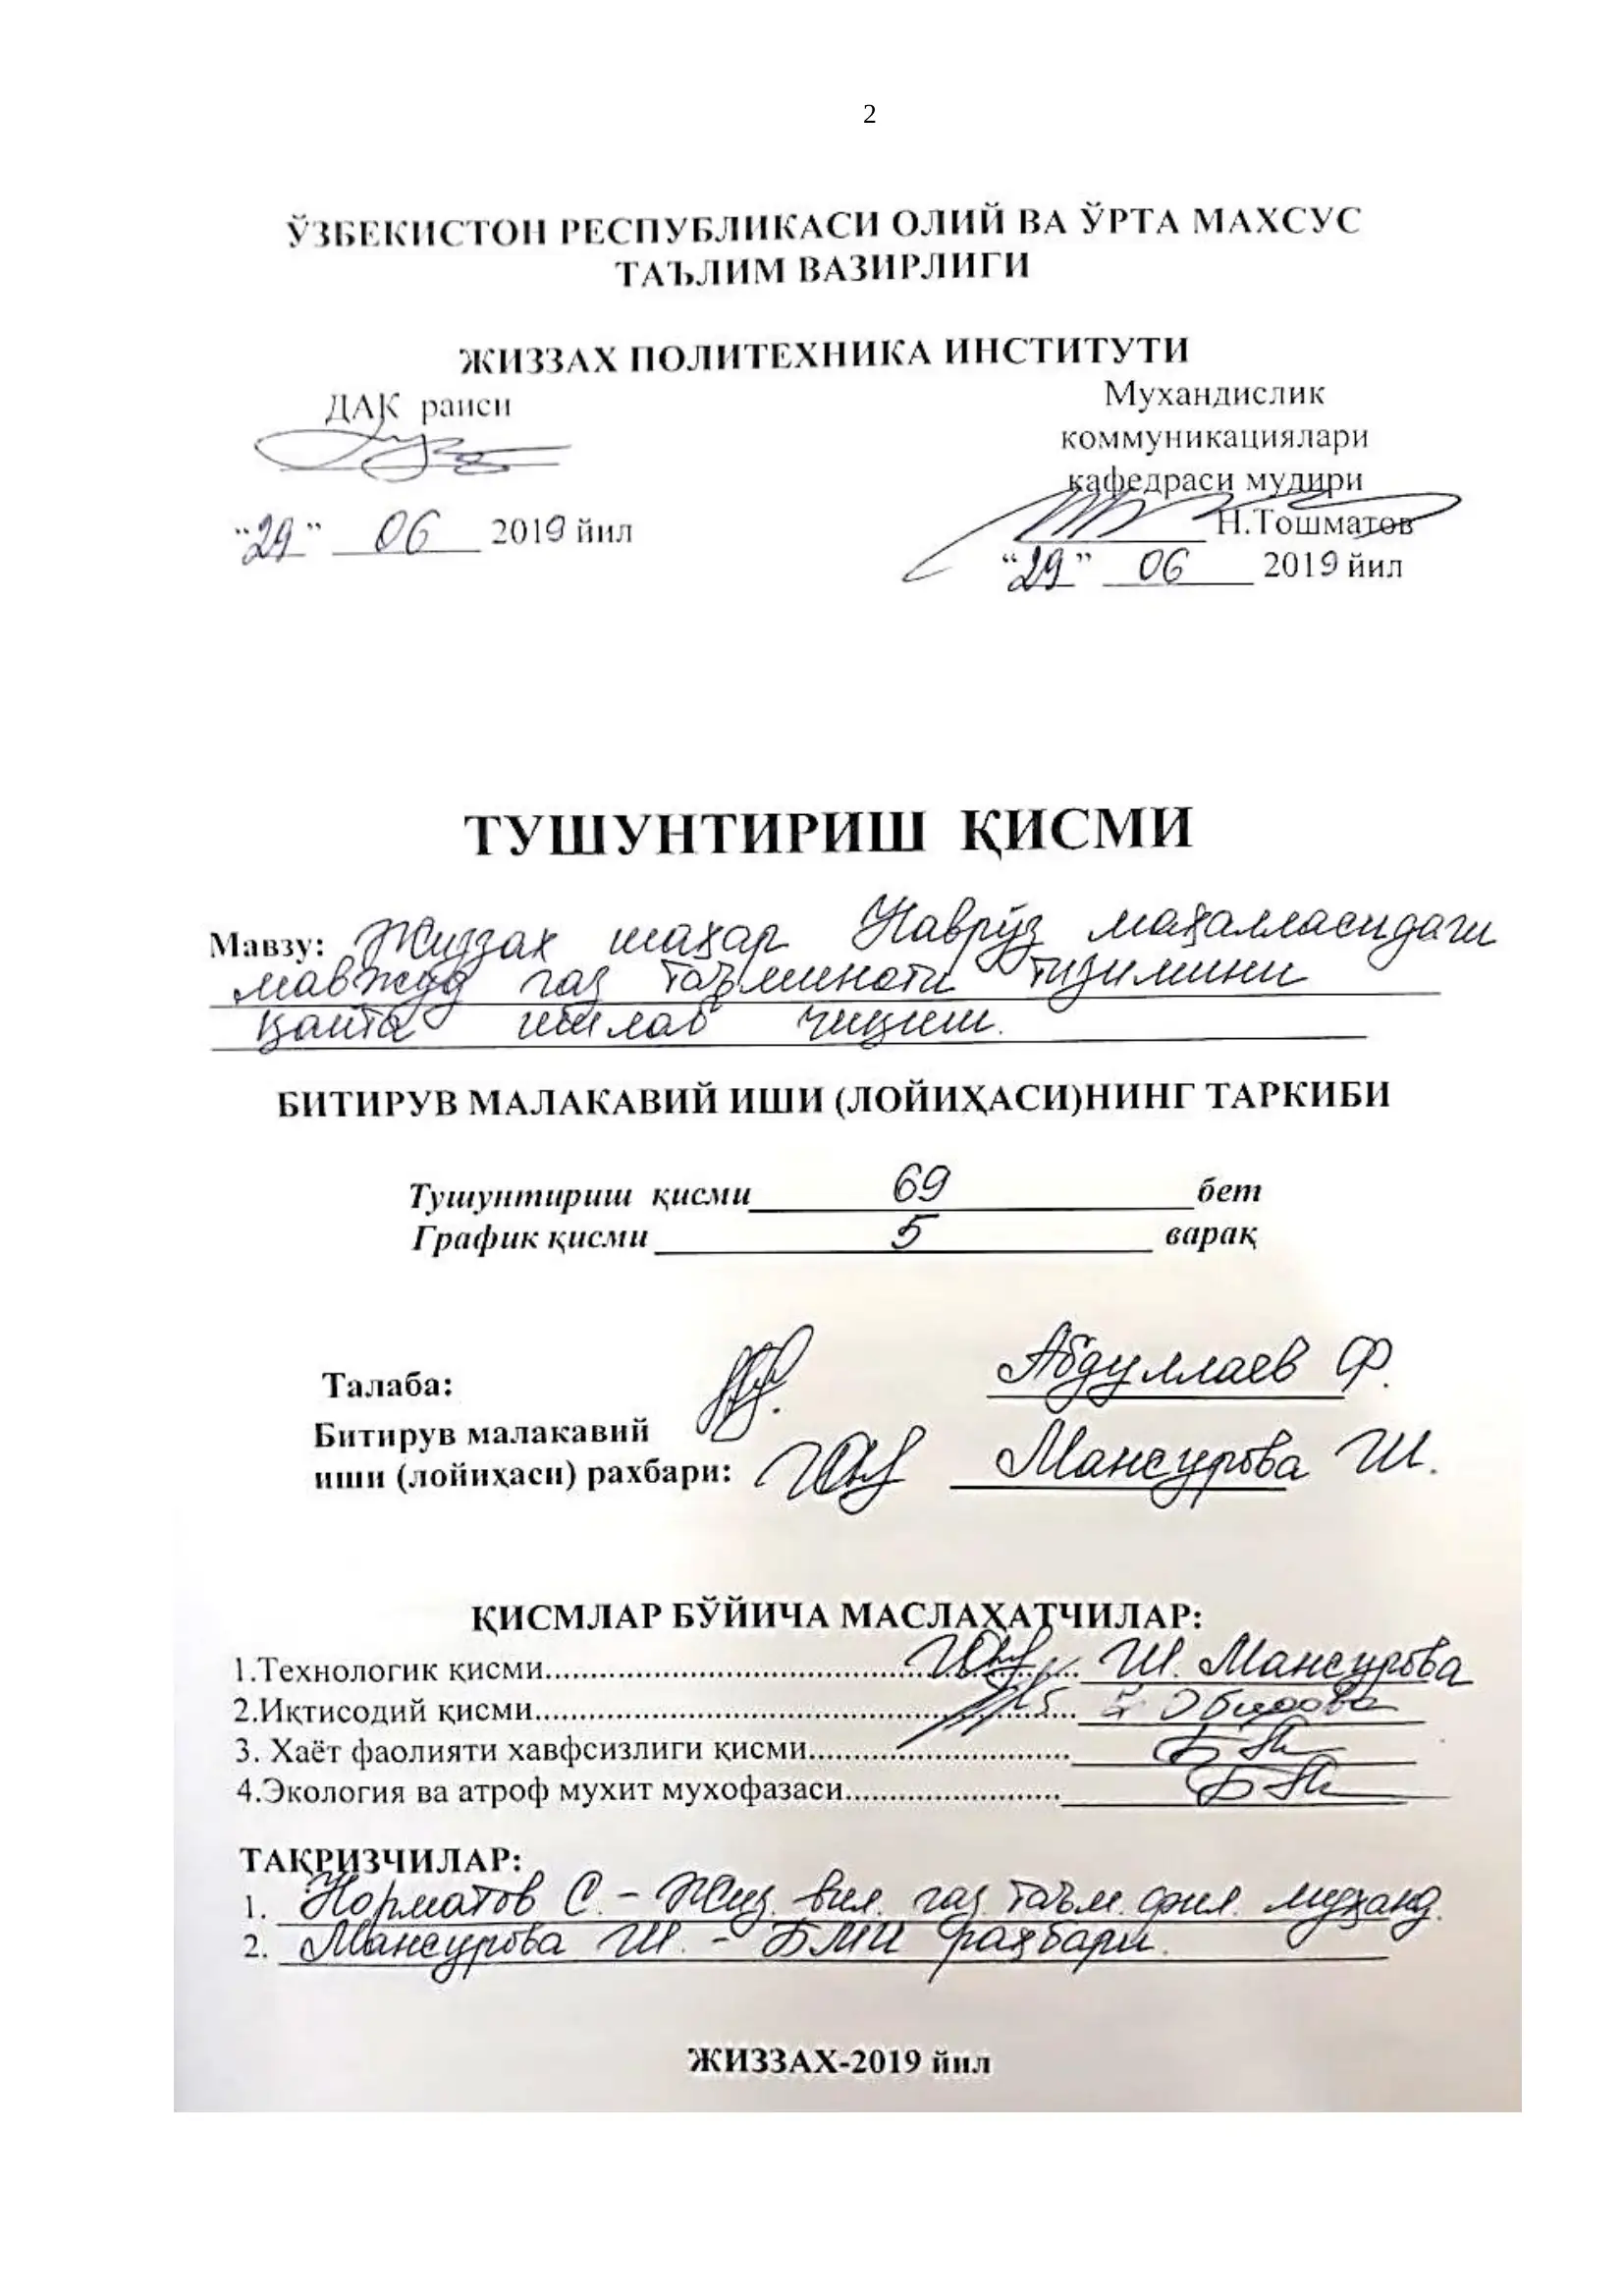 2
ЎЗБЕКИСТОН РЕСПУБЛИКАСИ ОЛИЙ ВА ЎРТА МАХСУС
ТАЪЛИМ ВАЗИРЛИГИ
ЖИЗЗАХ ПОЛИТЕХНИКА ИНСТИТУТИ
ДАК раиси
“29” 06 2019 йил
Мухандислик
коммуникациялари
кафедраси мудири
Н.Тошматов
“29” 06 2019 йил
ТУШУНТИРИШ ҚИСМИ
Мавзу: Жиззах шаҳар Наврўз маҳалласидаги
мавжуд газ таъминоти тизимини
қайта ишлаб чиқиш.
БИТИРУВ МАЛАКАВИЙ ИШИ (ЛОЙИҲАСИ)НИНГ ТАРКИБИ
Тушунтириш қисми 69 бет
График қисми 5 варақ
Талаба: Абдуллаев Ф.
Битирув малакавий
иши (лойиҳаси) рахбари: Мансурова Ш.
ҚИСМЛАР БЎЙИЧА МАСЛАҲАТЧИЛАР:
1.Технологик қисми........ Ш. Мансурова
2.Иқтисодий қисми........ Обидова
3. Хаёт фаолияти хавфсизлиги қисми........
4.Экология ва атроф мухит мухофазаси........
ТАҚРИЗЧИЛАР:
1. Норматов С. – Жиз. вил. газ. таъм. фил. муҳанд.
2. Мансурова Ш. – БМИ раҳбари.
ЖИЗЗАХ-2019 йил